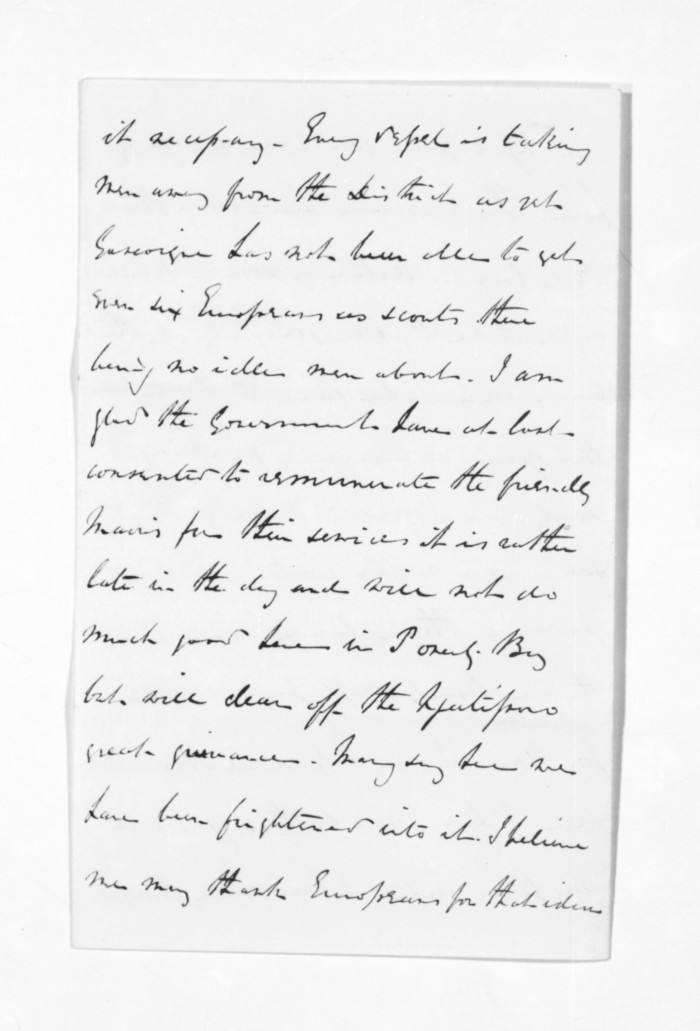 it necessary - Every vessel is taking
men away from the District as yet
Gascoigne has not been able to get
even six Europeans as scouts there
being no idle men about. I am
glad the Government have at last
consented to remunerate the friendly
Maoris for their services it is rather
late in the day and will not do
much good here in Poverty Bay
but will clear off the Ngatiporo
great grievance. Many say here we
have been frightened into it. I believe
we may thank Europeans for that idea